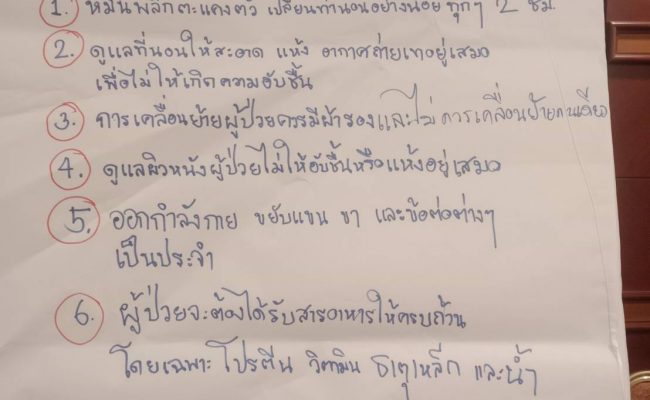 1. หมั่นพลิกตะแคงตัว เปลี่ยนท่านอนอย่างน้อย ทุกๆ 2 ชม.
2. ดูแลที่นอนให้สะอาด แห้ง อากาศถ่ายเทอยู่เสมอ
เพื่อไม่ให้เกิดความอับชื้น
3. การเคลื่อนย้ายผู้ป่วยควรมีผ้ารองและไม่ควรเคลื่อนย้ายคนเดียว
4. ดูแลผิวหนังผู้ป่วยไม่ให้อับชื้นหรือแห้งอยู่เสมอ
5. ออกกำลังกาย ขยับแขน ขา และข้อต่อต่างๆ
เป็นประจำ
6. ผู้ป่วยจะต้องได้รับสารอาหารให้ครบถ้วน
โดยเฉพาะ โปรตีน วิตามิน ธาตุเหล็ก และน้ำ